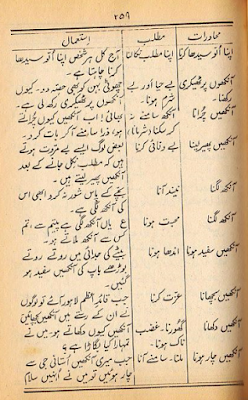 ۲۵۹
محاورات مطلب استعمال
اپنا اُلّو سیدھا کرنا اپنا مطلب نکالنا آج کل ہر شخص اپنا اُلّو سیدھا
کرنا چاہتا ہے۔
آنکھوں پر ٹھیکری بے حیا اور بے چھوٹی بہن کو بھی حصہ دو۔ کیوں
رکھنا۔ شرم ہونا۔ آنکھوں پر ٹھیکری رکھ لی ہے۔
آنکھیں چُرانا آنکھ سامنے نہ بھائی! اب آنکھیں کیوں چُراتے
کر سکنا (شرمانا) ہو؟ ذرا سامنے آ کر بات کرو۔
آنکھیں پھیر لینا بے وفائی کرنا بعض لوگ ایسے بے مروّت ہوتے
ہیں کہ مطلب نکل جانے کے بعد
آنکھیں پھیر لیتے ہیں۔
آنکھ لگنا نیند آنا بچّے کے پاس شور نہ کرو ابھی اس
کی آنکھ لگی ہے۔
آنکھ لگنا محبت ہونا ع یاں آنکھ لگی ہے بیتم سے، تم
کس سے آنکھ ملاتے ہو۔
آنکھیں سفید ہونا اندھا ہونا بیٹے کی جدائی میں روتے روتے
بوڑھے باپ کی آنکھیں سفید ہو
گئیں۔
آنکھیں بچھانا عزت کرنا جب قائد اعظم لاہور آئے تو لوگوں
نے ان کے رستے میں آنکھیں بچھائیں
آنکھیں دکھانا گھورنا۔ غضب آنکھیں کیوں دکھاتے ہو۔ میں نے
ناک ہونا۔ تمہارا کیا بگاڑا ہے؟
آنکھیں چار ہونا ملنا۔ سامنے آنا جب میری آنکھیں اُستانی جی سے
چار ہوئیں تو میں نے اُنہیں سلام